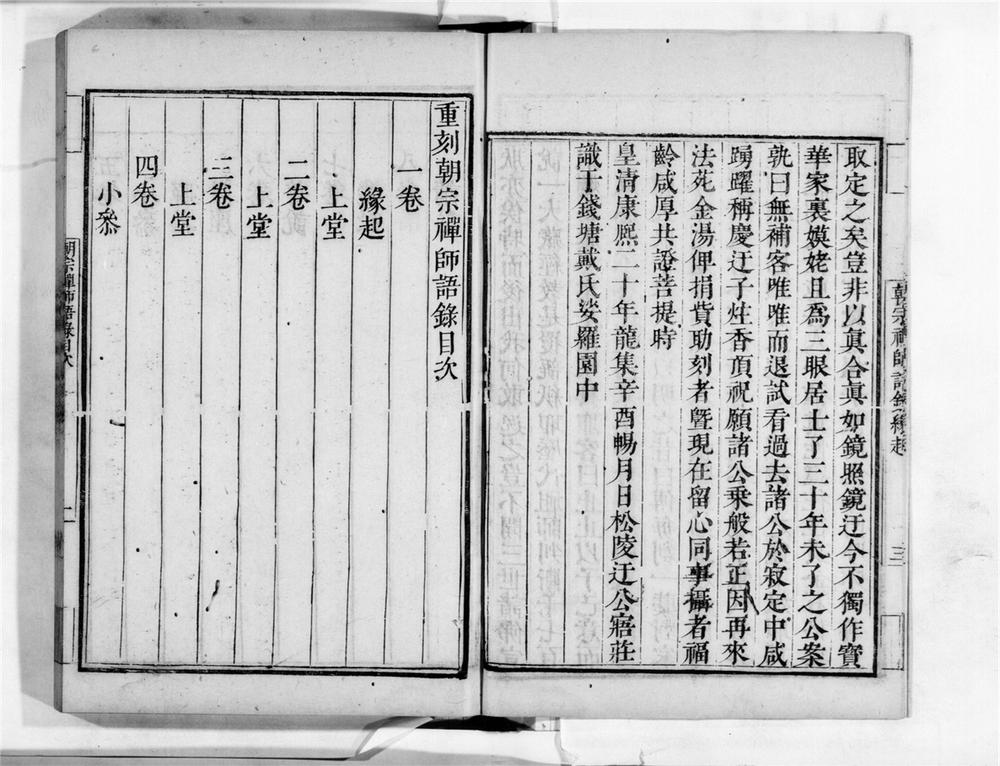 取定之矣豈非以眞合眞如鏡照鏡迂今不獨作寶
華家裏嫫姥且爲三眼居士了三十年未了之公案
孰曰無補客唯唯而退試看過去諸公於寂定中咸
踴躍稱慶迂子炷香頂祝願諸公乘般若正因再來
法苑金湯俾捐貲助刻者曁現在留心同事攝者福
齡咸厚共證菩提時
皇清康熈二十年龍集辛酉暢月日松陵迂公寤莊
識于錢塘戴氏娑羅園中
朝宗禪師語錄緣起
三
重刻朝宗禪師語錄目次
一卷
緣起
上堂
二卷
上堂
三卷
上堂
四卷
小叅
朝宗禪師語錄目次
一